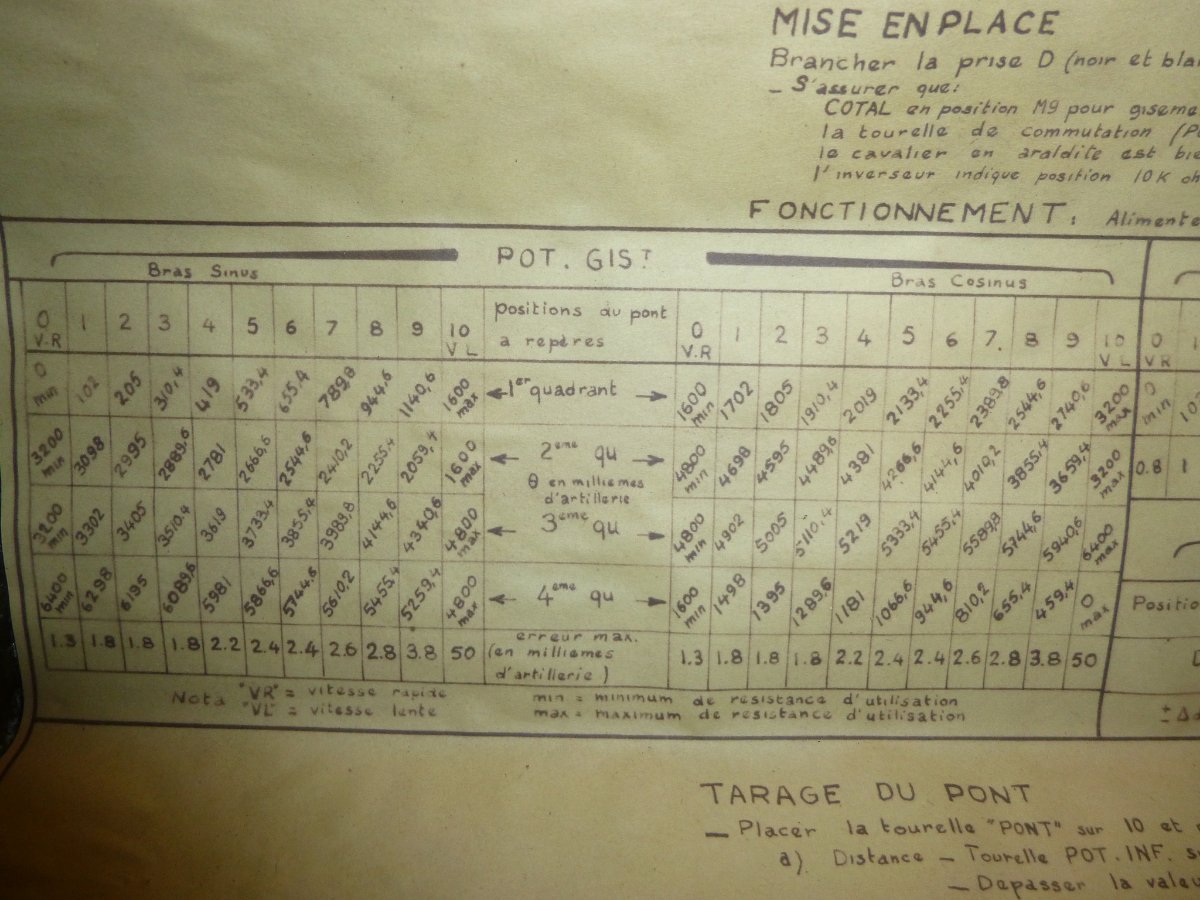 MISE EN PLACE
Brancher la prise D (noir et blan
- S'assurer que:
COTAL en position M9 pour giseme
la tourelle de commutation (P
le cavalier en araldite est bie
l'inverseur indique position 10K oh
FONCTIONNEMENT: Alimente
POT. GIST
Bras Sinus Bras Cosinus
0 V.R 1 2 3 4 5 6 7 8 9 10 V L positions du pont a repères 0 V.R 1 2 3 4 5 6 7. 8 9 10 V L 0 V R
0 min 102 205 310,4 419 533,4 655,4 789,8 944,6 1140,6 1600 max ← 1er quadrant → 1600 min 1702 1805 1910,4 2019 2133,4 2255,4 2389,8 2544,6 2740,6 3200 max 0 min
3200 min 3098 2995 2889,6 2781 2666,6 2544,6 2410,2 2255,4 2059,4 1600 max ← 2eme qu → 4800 min 4698 4595 4489,6 4381 4266,6 4144,6 4010,2 3855,4 3659,4 3200 max 0.8 1
θ en milliemes
d'artillerie
3200 min 3302 3405 3510,4 3619 3733,4 3855,4 3989,8 4144,6 4340,6 4800 max ← 3eme qu → 4800 min 4902 5005 5110,4 5219 5333,4 5455,4 5589,8 5744,6 5940,6 6400 max
6400 min 6298 6195 6089,6 5981 5866,6 5744,6 5610,2 5455,4 5259,4 4800 max ← 4eme qu → 1600 min 1498 1395 1289,6 1181 1066,6 944,6 810,2 655,4 459,4 0 max Positio
1.3 1.8 1.8 1.8 2.2 2.4 2.4 2.6 2.8 3.8 50 erreur max. (en milliemes d'artillerie) 1.3 1.8 1.8 1.8 2.2 2.4 2.4 2.6 2.8 3.8 50
Nota "VR" = vitesse rapide min = minimum de resistance d'utilisation
"VL" = vitesse lente max = maximum de resistance d'utilisation
± Δ
TARAGE DU PONT
- Placer la tourelle "PONT" sur 10 et
a) Distance - Tourelle POT. INF. s
- Depasser la valeu